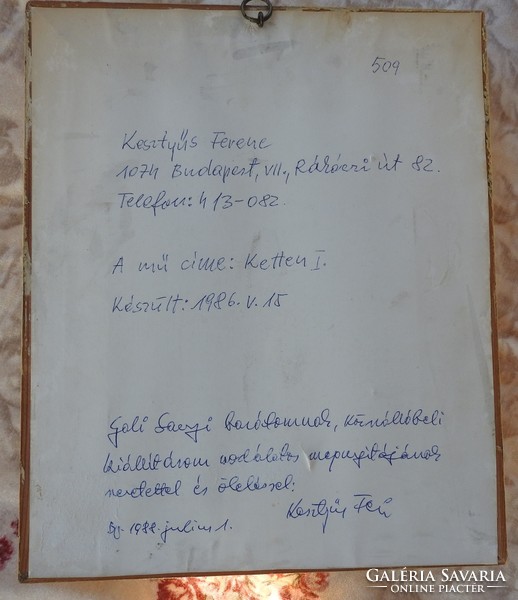 509
Kesztyűs Ferenc
1074 Budapest, VII., Rákóczi út 82.
Telefon: 413-082
A mű címe: Ketten I.
Készült: 1986. V. 15
Gali Laczi barátomnak,
kiállításom csodálatos megnyitójának
szeretettel és öleléssel:
Kesztyűs Feri
1988. julius 1.
GALÉRIA SAVARIA
ONLINE PIACTÉR